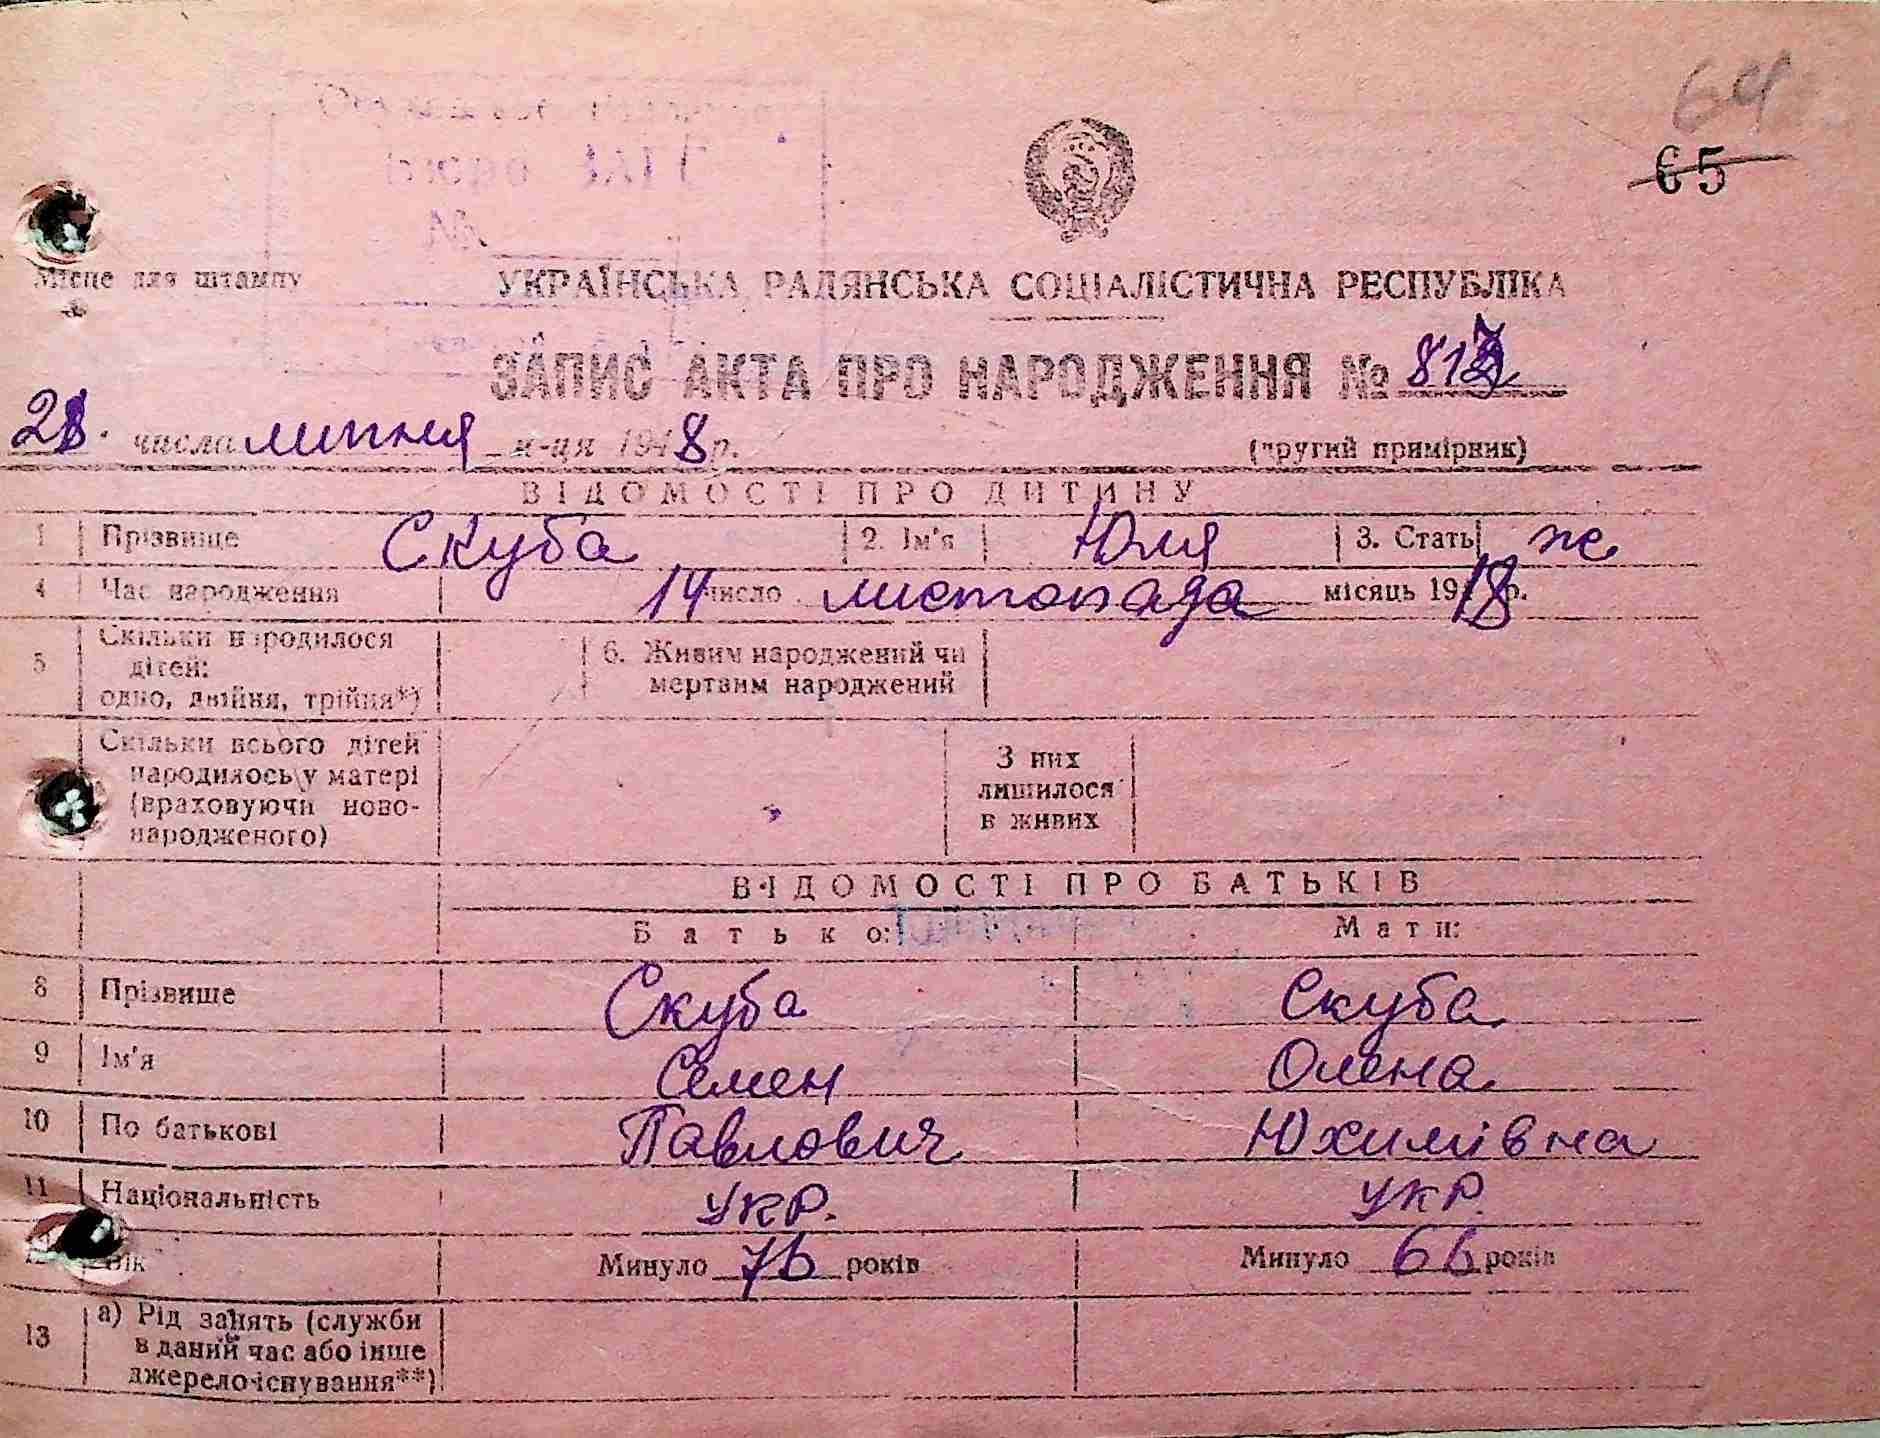 64
65
Місце для штампу
УКРАЇНСЬКА РАДЯНСЬКА СОЦІАЛІСТИЧНА РЕСПУБЛІКА
ЗАПИС АКТА ПРО НАРОДЖЕННЯ №
числа липня м-ця 1948 р.
(другий примірник)
ВІДОМОСТІ ПРО ДИТИНУ
1 Прізвище Скуба 2. Ім'я Юля 3. Стать ж
4 Час народження 14 число листопада місяць 1918 р.
5 Скільки народилося дітей: одно, двійня, трійня*) 6. Живим народжений чи мертвим народжений
Скільки всього дітей народилось у матері (враховуючи новонародженого) З них лишилося в живих
ВІДОМОСТІ ПРО БАТЬКІВ
Батько: Мати:
8 Прізвище Скуба Скуба
9 Ім'я Семен Олена
10 По батькові Павлович Юхимівна
11 Національність укр. укр.
12 Вік Минуло 76 років Минуло 66 років
13 а) Рід занять (служби в даний час або інше джерело існування**)